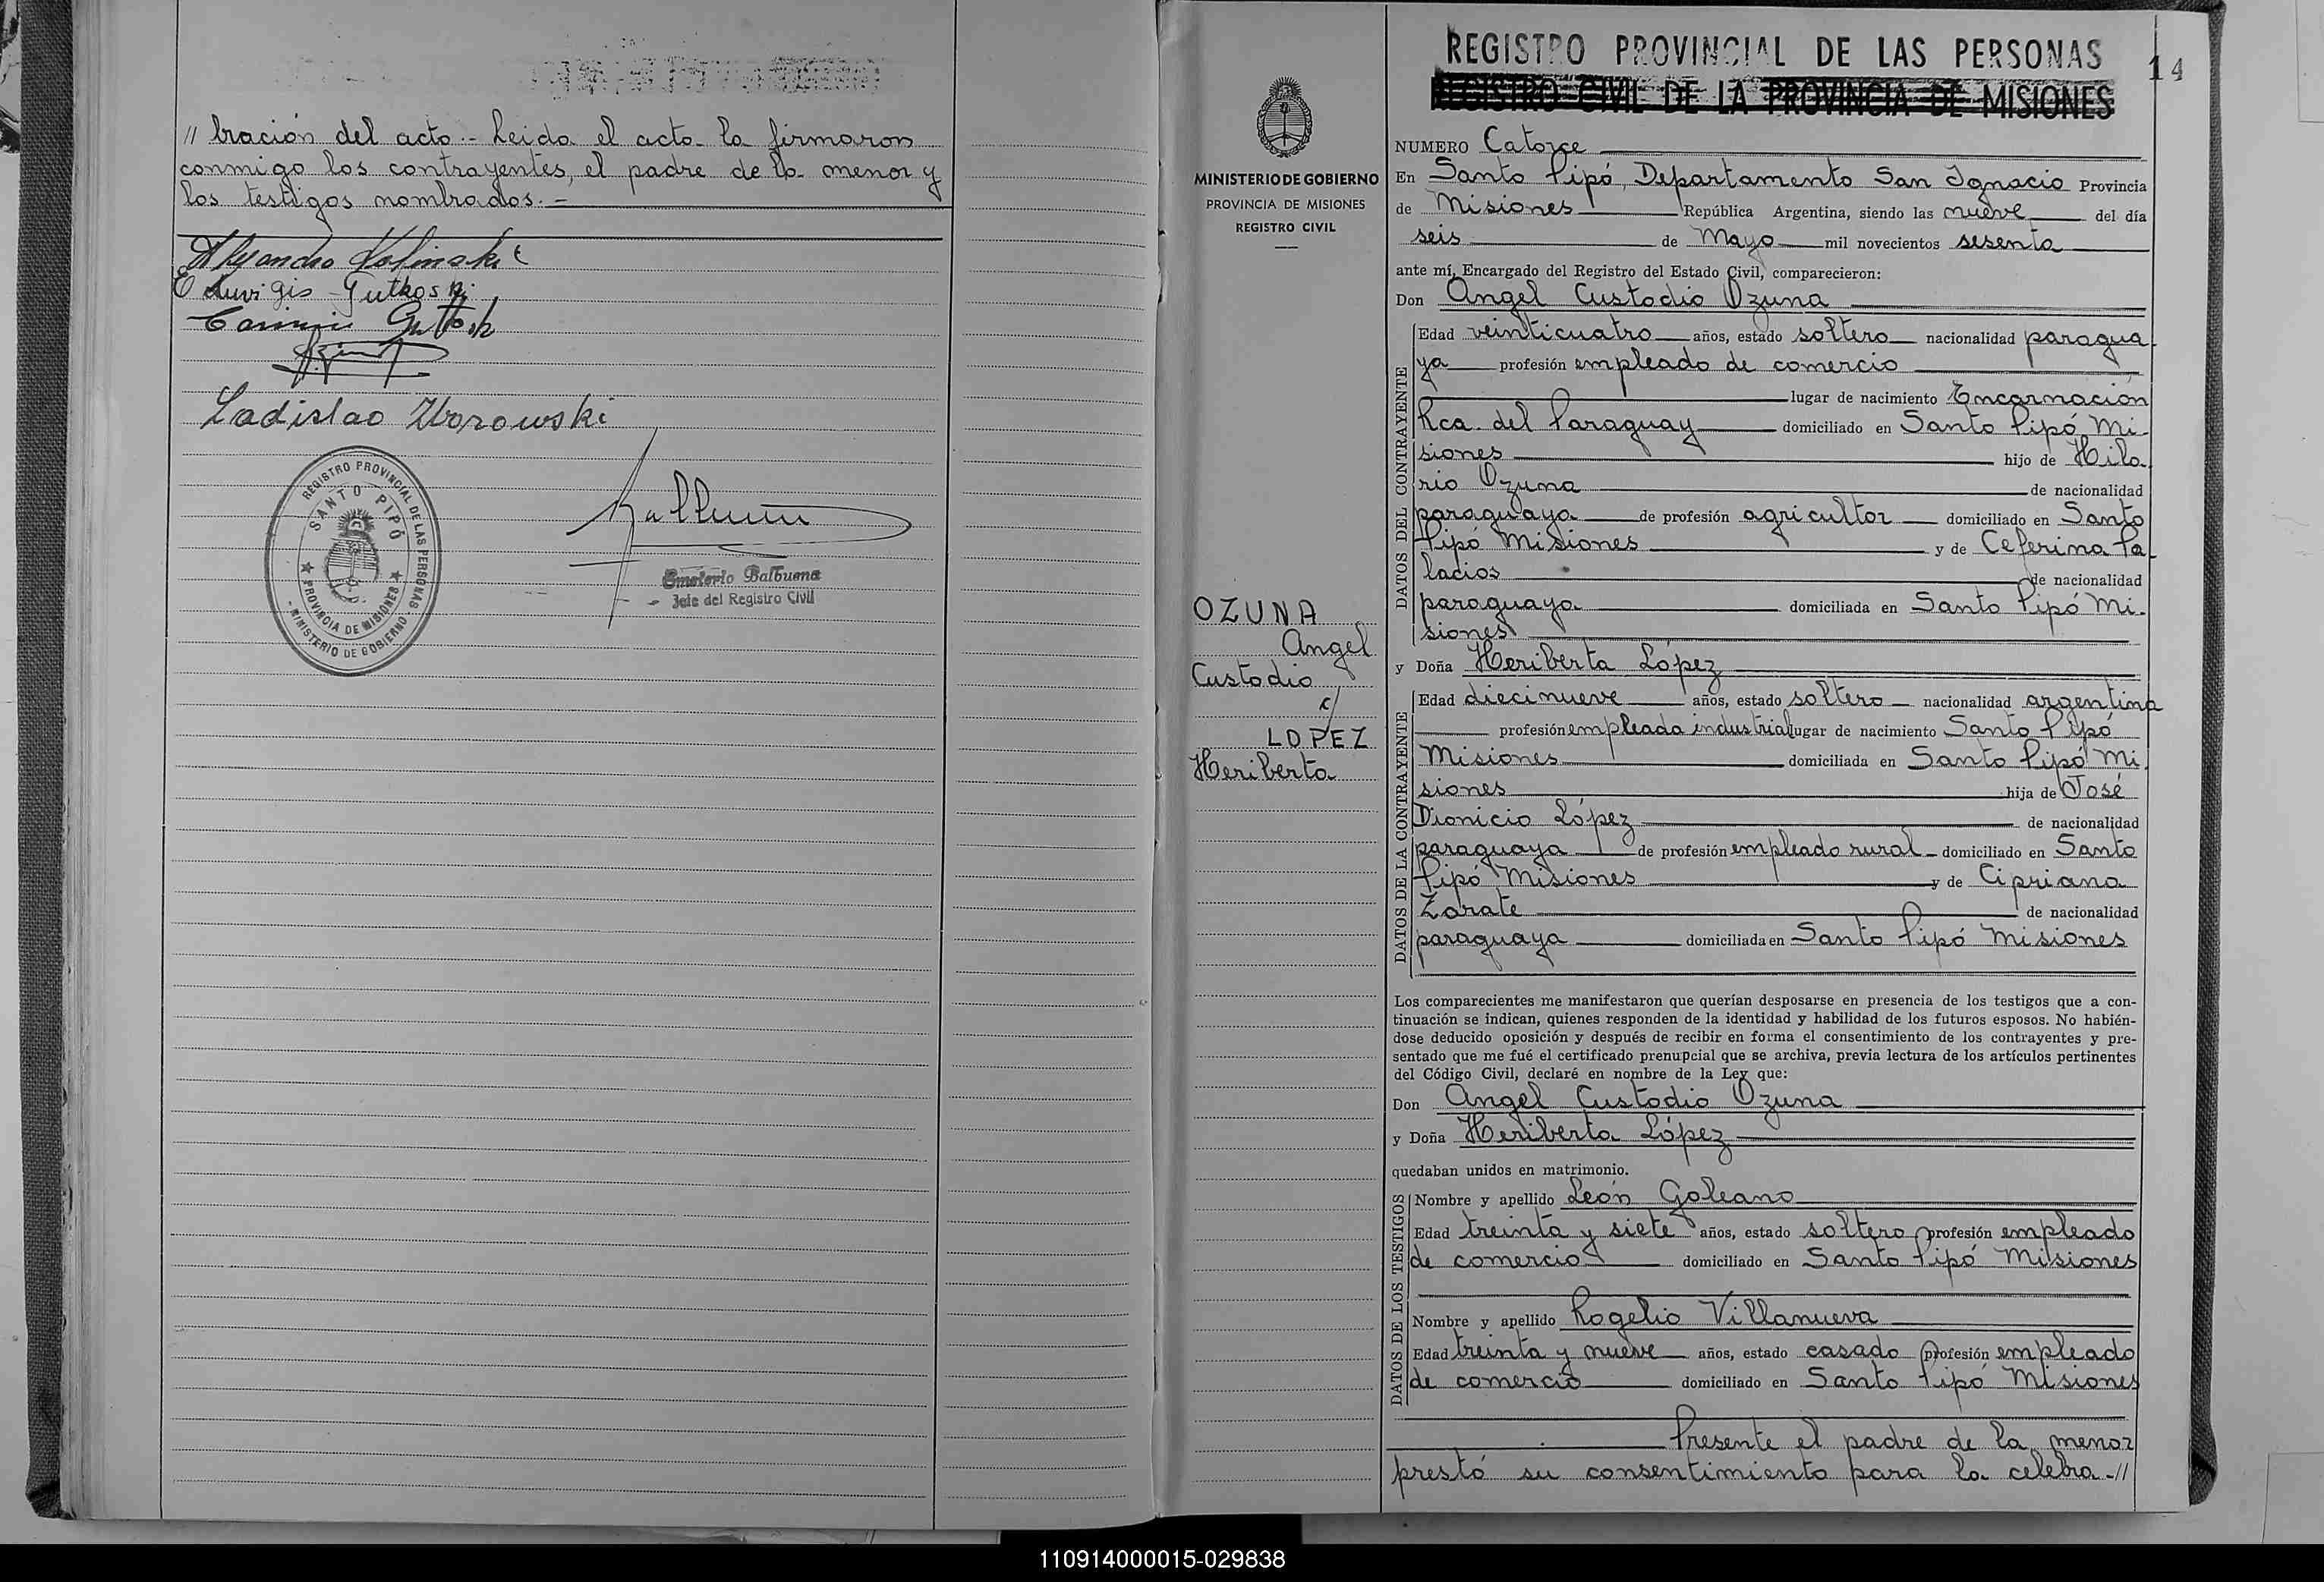 // bración del acto.- Leida el acta la firmaron
conmigo los contrayentes, el padre de la menor y
los testigos nombrados.-
Alejandro Kolinski
Eduvigis Gutkoski
Ladislao Zborowski
REGISTRO PROVINCIAL DE LAS PERSONAS
SANTO PIPÓ
PROVINCIA DE MISIONES
- MINISTERIO DE GOBIERNO -
Emeterio Balbuena
Jefe del Registro Civil
MINISTERIO DE GOBIERNO
PROVINCIA DE MISIONES
REGISTRO CIVIL
OZUNA
Angel
Custodio
c/
LOPEZ
Heriberta
REGISTRO PROVINCIAL DE LAS PERSONAS
14
REGISTRO CIVIL DE LA PROVINCIA DE MISIONES
NUMERO Catorce
En Santo Pipó, Departamento San Ignacio Provincia
de Misiones República Argentina, siendo las nueve del día
seis de Mayo mil novecientos sesenta
ante mí, Encargado del Registro del Estado Civil, comparecieron:
Don Angel Custodio Ozuna
DATOS DEL CONTRAYENTE
Edad veinticuatro años, estado soltero nacionalidad paragua-
ya profesión empleado de comercio
lugar de nacimiento Encarnación
Rca. del Paraguay domiciliado en Santo Pipó Mi-
siones hijo de Hila-
rio Ozuna de nacionalidad
paraguaya de profesión agricultor domiciliado en Santo
Pipó Misiones y de Ceferina Pa-
lacios de nacionalidad
paraguaya domiciliada en Santo Pipó Mi-
siones
y Doña Heriberta López
DATOS DE LA CONTRAYENTE
Edad diecinueve años, estado soltero nacionalidad argentina
profesión empleada industrial lugar de nacimiento Santo Pipó
Misiones domiciliada en Santo Pipó Mi-
siones hija de José
Dionicio López de nacionalidad
paraguaya de profesión empleado rural domiciliado en Santo
Pipó Misiones y de Cipriana
Zarate de nacionalidad
paraguaya domiciliada en Santo Pipó Misiones
Los comparecientes me manifestaron que querían desposarse en presencia de los testigos que a con-
tinuación se indican, quienes responden de la identidad y habilidad de los futuros esposos. No habién-
dose deducido oposición y después de recibir en forma el consentimiento de los contrayentes y pre-
sentado que me fué el certificado prenupcial que se archiva, previa lectura de los artículos pertinentes
del Código Civil, declaré en nombre de la Ley que:
Don Angel Custodio Ozuna
y Doña Heriberta López
quedaban unidos en matrimonio.
DATOS DE LOS TESTIGOS
Nombre y apellido León Goleano
Edad treinta y siete años, estado soltero profesión empleado
de comercio domiciliado en Santo Pipó Misiones
Nombre y apellido Rogelio Villanueva
Edad treinta y nueve años, estado casado profesión empleado
de comercio domiciliado en Santo Pipó Misiones
Presente el padre de la menor
prestó su consentimiento para la celebra-//
110914000015-029838